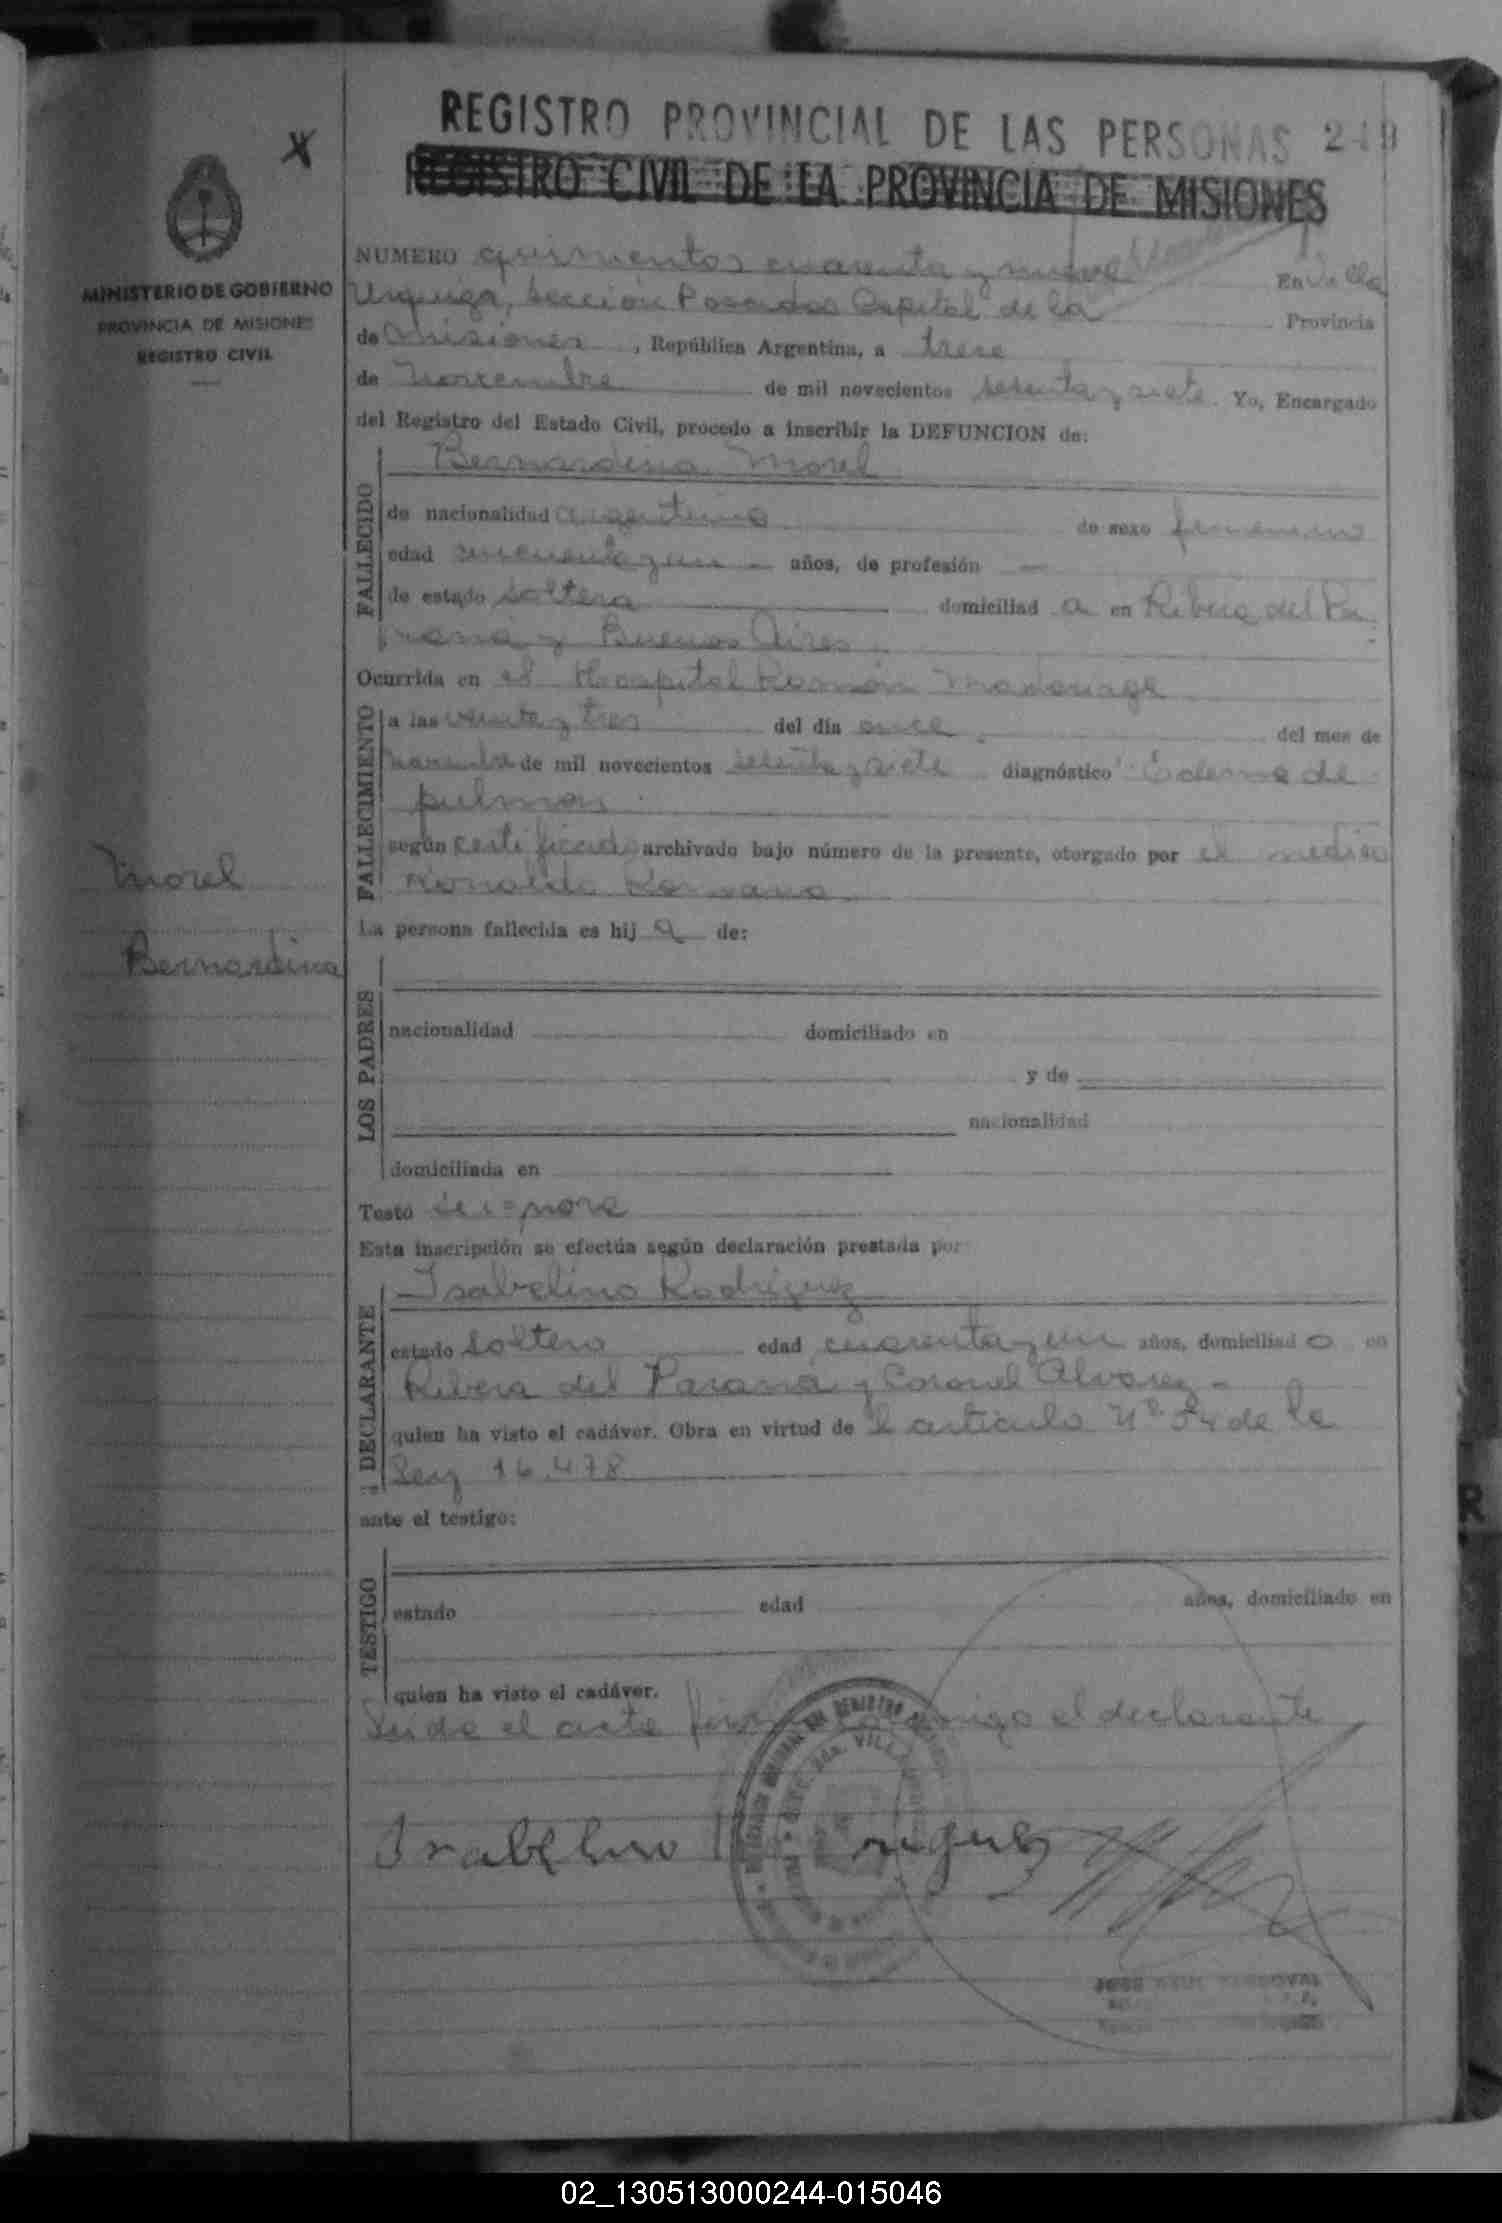 REGISTRO PROVINCIAL DE LAS PERSONAS
REGISTRO CIVIL DE LA PROVINCIA DE MISIONES
MINISTERIO DE GOBIERNO
PROVINCIA DE MISIONES
REGISTRO CIVIL
NUMERO quinientos cuarenta y nueve En Villa
Urquiza, Sección Posadas Capital de la Provincia
de Misiones, República Argentina, a trece
de Noviembre de mil novecientos setenta y siete. Yo, Encargado
del Registro del Estado Civil, procedo a inscribir la DEFUNCION de:
FALLECIDO
Bernardina Morel
de nacionalidad argentina de sexo femenino
edad cincuenta y un años, de profesión —
de estado soltera domiciliad a en Ribera del Pa
raná y Buenos Aires.
Ocurrida en el Hospital Ramón Madariaga
FALLECIMIENTO
a las veinte y tres del día once del mes de
noviembre de mil novecientos setenta y siete diagnóstico Edema de
pulmon
según certificado archivado bajo número de la presente, otorgado por el medico
Ronaldo
Morel
Bernardina
La persona fallecida es hij a de:
LOS PADRES
nacionalidad domiciliado en
y de
nacionalidad
domiciliada en
Testó se ignora
Esta inscripción se efectúa según declaración prestada por:
DECLARANTE
Isabelino Rodriguez
estado soltero edad cuarenta y un años, domiciliad o en
Ribera del Parana y Coronel Alvarez -
quien ha visto el cadáver. Obra en virtud de l articulo Nº 54 de la
Ley 16.478
ante el testigo:
TESTIGO
estado edad años, domiciliado en
quien ha visto el cadáver.
Leida el acta el declarante
Isabelino
02_130513000244-015046